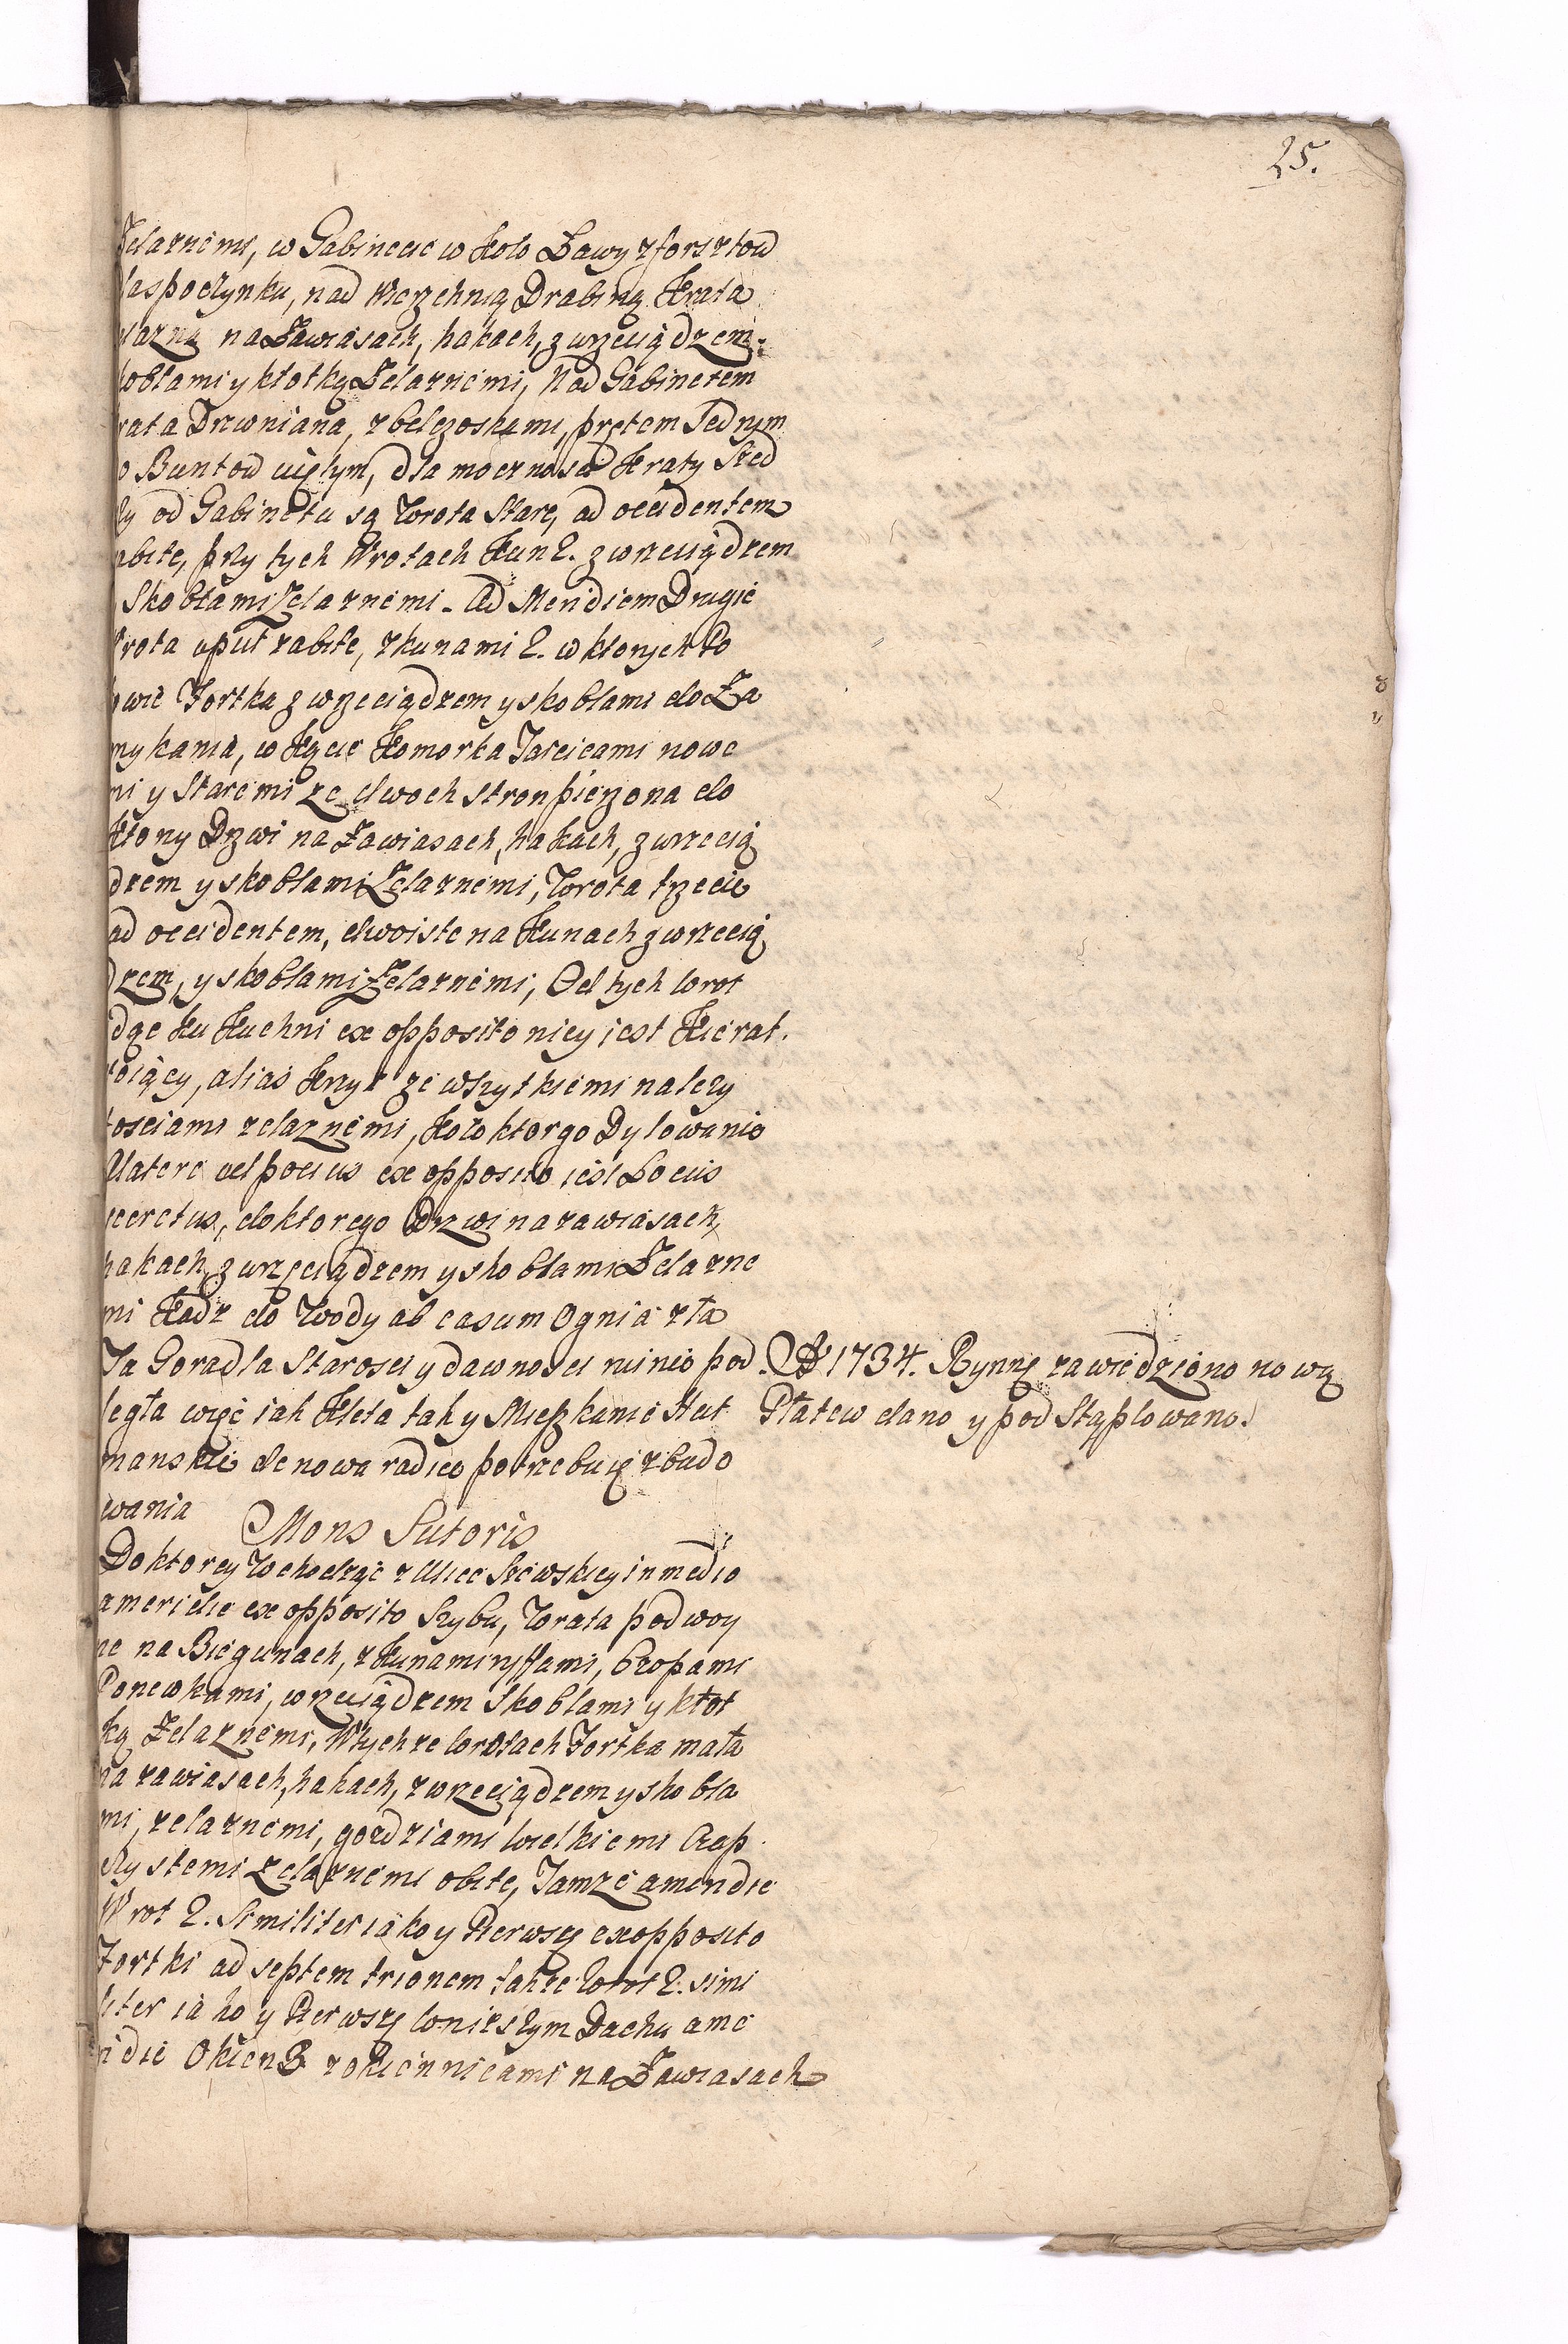 25.
Zelaznemi, w Gabinecie w koło Ławy z forsztow
laspoczynku, nad Wierzchnią Drabiną Krata
elazna na Zawiasach, hakach, z wrzeciądzem
kobłami y kłotką Zelaznemi, Nad Gabinetem
rata Drzwniana, z beleczoskami, prętem Jednym
o Buntow ciętym, dla mocznosci Kraty Sted
ly od Gabinetu są Wrota Stare, ad occidentem
abite, przy tych Wrotach Kun 2. z wrzeciądzem
Skobłami Zelaznemi. Ad Meridiem Drugie
rota oput zabite, z kunami 2. w ktorych Po
owie Fortka z wrzeciądzem y skobłami do Za
mykania, w Kącie Komorka Tarcicami nowe
mi y Staremi ze dwoch stron pierzona do
ktory Drzwi na Zawiasach, hakach, z wrzecią
dzem y skobłami Zelaznemi, Wrota trzecie
ad occidentem, dwoiste na Kunach z wrzecią
dzem, y skobłami Zelaznemi, Od tych wrot
dąc ku Kuchni ex opposito niey jest Kierat
oiący, alias Krzyz ze wszytkiemi nalezy
tosciami zelaznemi, Koło ktorgo Dylowanie
Alatere vel pocius ex opposito iest Locus
ecretus, do ktorego Drzwi na zawiasach,
hakach, z wrzeciądzem y skobłami Zelazne
mi Kadz do Wody ab casum Ognia zła
Ta Gora dla Starosci y dawnosci ruinie pod
legła więc iak Kleta tak y Mieszkanie Hut
manskie de nowa radice potrzebuię zbudo
wania
A° 1734. Rynnę zawiedziono nową
Płatew dano y pod Stąplowano.
Mons Sutoris
Do ktorey Wchodząc z Ulicc Szewskiey in medio
a meridie ex opposito Szybu, Wrata podwoy
ne na Biegunach, z Kunami ryffami, Czopami
Ponewkami, wrzeciądzem Skobłami y kłot
ką Zelaznemi, W tychze wrotach Fortka mała
na zawiasach, hakach, z wrzeciądzem y skobła
mi, zelaznemi, gozdziami wielkiemi Czap
czystemi Zelaznemi obite, Tamze a meridie
Wrot 2. Similiter iako y Pierwsze ex opposito
Fortki ad septemtrionem takze Wrot 2. simi
liter iako y Pierwsze w niższym Dachu a me
ridie Okien 3 z okiennicami na Zawiasach